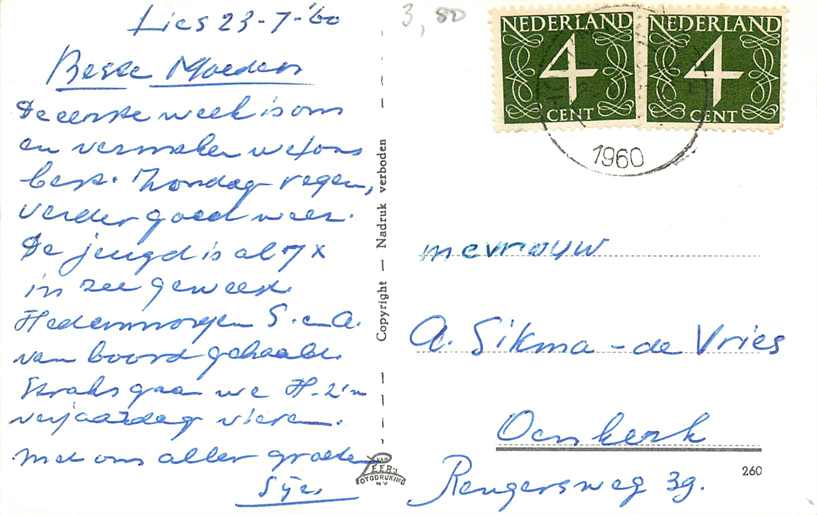 Lies 23-7-'60
Beste Moeder
De eerste week is om
en vermaken we ons
best. Zondag regen,
verder goed weer.
De jeugd is al 7x
in zee geweest.
Hedenmorgen S. en A.
van boord gehaald.
Straks gaan we H-z'n
verjaardag vieren.
Met ons aller groeten
Sije
3,50
NEDERLAND
4
CENT
NEDERLAND
4
CENT
1960
Copyright — Nadruk verboden
VAN LEER'S
FOTODRUKIND
N.V.
mevrouw
A. Sikma-de Vries
Oenkerk
260
Rengersweg 39.